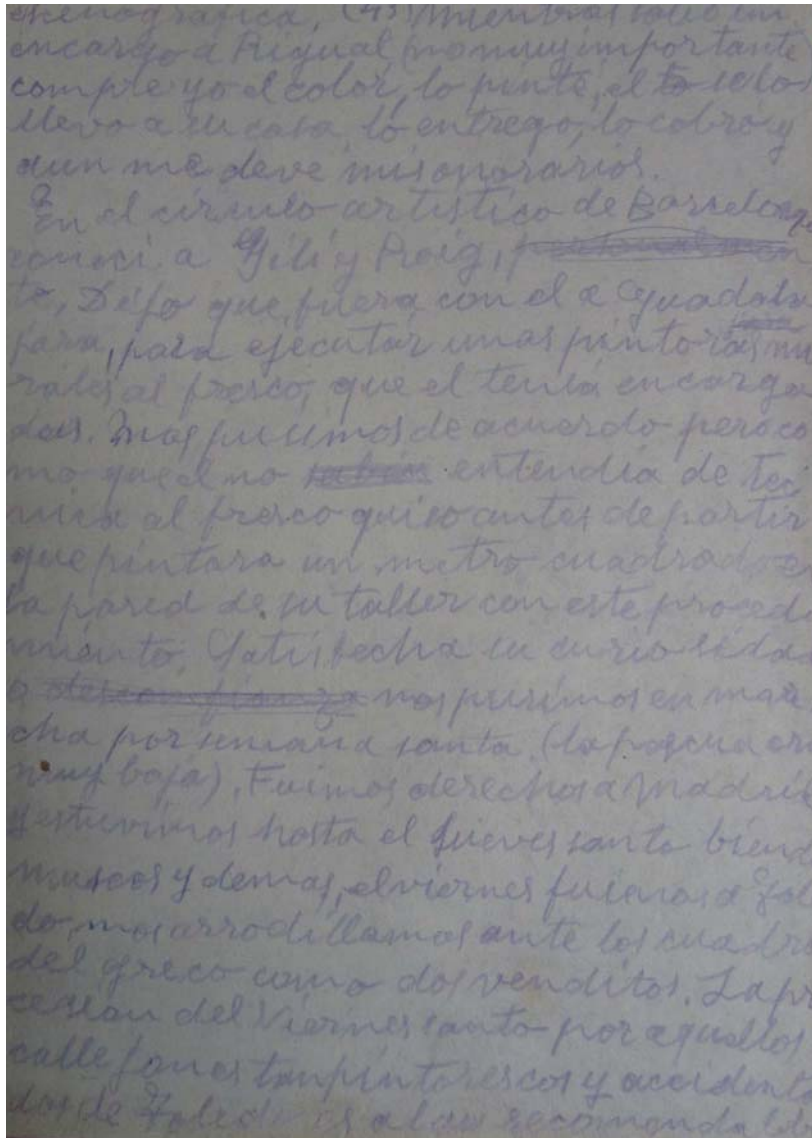 escenografica, (43) Mientras salio un
encargo a Rigual (no muy importante)
compre yo el color, lo pinté, el se los
llevo a su casa, lo entrego, lo cobró y
aun me deve mis onorarios.
En el circulo artistico de Barcelona
conoci a Gili y Roig, personalmen
te, Dijo que fuera con el a Guadala
jara, para ejecutar unas pintoras mu
rales al fresco, que el tenia encarga
das. Mos pusimos de acuerdo pero co
mo que el no sabia entendia de tec
nica al fresco quiso antes de partir
que pintara un metro cuadrado en
la pared de su taller con este procedi
miento, Satisfecha su curiosidad
o desconfianza nos pusimos en mar
cha por semana santa. (la pascua era
muy baja). Fuimos derechos a Madrid
y estuvimos hasta el jueves santo biend
museos y demas, el viernes fuimos a Tole
do, mos arrodillamos ante los cuadros
del greco como dos venditos. La pro
cesion del Viernes santo por aquellos
callejones tan pintorescos y accidenta
dos de Toledo es algo recomendable